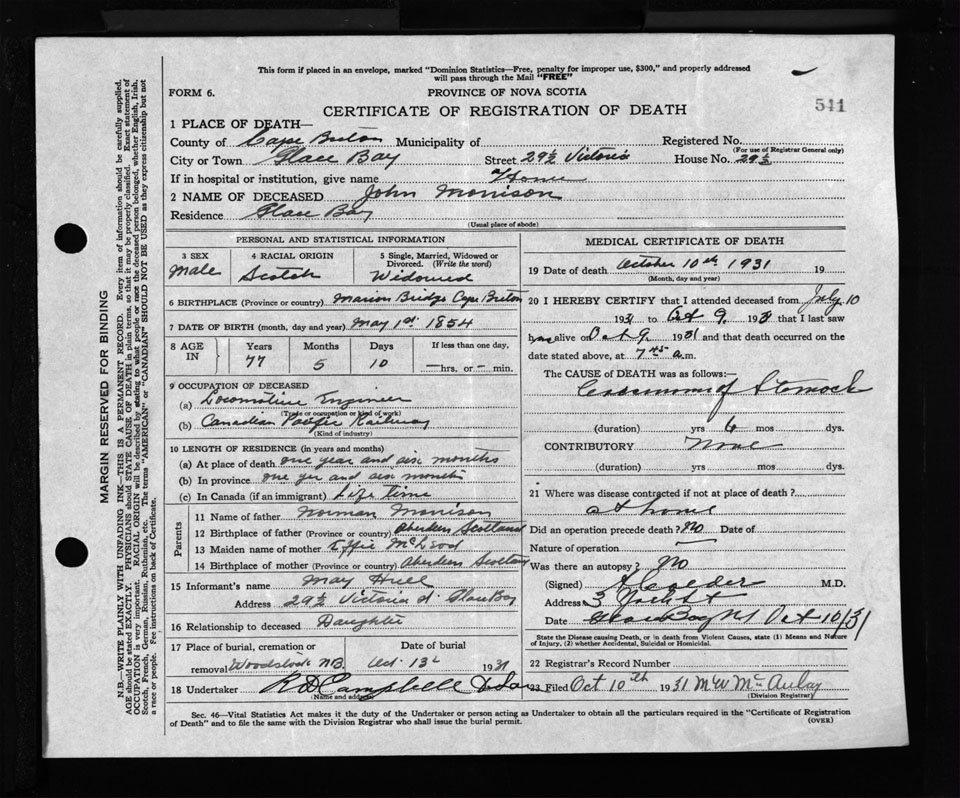 This form if placed in an envelope, marked "Dominion Statistics—Free, penalty for improper use, $300," and properly addressed
will pass through the Mail "FREE"
FORM 6.
PROVINCE OF NOVA SCOTIA
541
CERTIFICATE OF REGISTRATION OF DEATH
1 PLACE OF DEATH—
County of Cape Breton Municipality of Registered No.
(For use of Registrar General only)
City or Town Glace Bay Street 29½ Victoria House No. 29½
If in hospital or institution, give name Home
2 NAME OF DECEASED John Morrison
Residence Glace Bay
(Usual place of abode)
PERSONAL AND STATISTICAL INFORMATION
3 SEX 4 RACIAL ORIGIN 5 Single, Married, Widowed or
Divorced. (Write the word)
Male Scotch Widowed
6 BIRTHPLACE (Province or country) Marion Bridge Cape Breton
7 DATE OF BIRTH (month, day and year) May 1st 1854
8 AGE IN Years Months Days If less than one day,
77 5 10 —hrs. or – min.
9 OCCUPATION OF DECEASED
(a) Locomotive Engineer
(Trade or occupation or kind of work)
(b) Canadian Pacific Railway
(Kind of industry)
10 LENGTH OF RESIDENCE (in years and months)
(a) At place of death one year and six months
(b) In province one yer and six months
(c) In Canada (if an immigrant) Life time
Parents
11 Name of father Norman Morrison
12 Birthplace of father (Province or country) Aberdeen Scotland
13 Maiden name of mother Effie McLeod
14 Birthplace of mother (Province or country) Aberdeen Scotland
15 Informant's name May Hull
Address 29½ Victoria st. Glace Bay
16 Relationship to deceased Daughter
17 Place of burial, cremation or Date of burial
removal Woodstock N.B. Oct. 13 1931
18 Undertaker R D Campbell
(Name and address)
MEDICAL CERTIFICATE OF DEATH
19 Date of death October 10th 1931 19
(Month, day and year)
20 I HEREBY CERTIFY that I attended deceased from July 10
1931 to Oct 9, 1931 that I last saw
h alive on Oct 9 1931 and that death occurred on the
date stated above, at 7 45 a.m.
The CAUSE OF DEATH was as follows:—
Carcinoma of Stomach
(duration) yrs 6 mos dys.
CONTRIBUTORY None
(duration) yrs mos dys.
21 Where was disease contracted if not at place of death?
at home
Did an operation precede death? No Date of
Nature of operation —
Was there an autopsy? No
(Signed) A Calder M.D.
Address
Date Glace Bay NS Oct 10/31
State the Disease causing Death, or in death from Violent Causes, state (1) Means and Nature
of Injury, (2) whether Accidental, Suicidal or Homicidal.
22 Registrar's Record Number
23 Filed Oct 10th 1931 M W McAulay
(Division Registrar)
Sec. 46—Vital Statistics Act makes it the duty of the Undertaker or person acting as Undertaker to obtain all the particulars required in the "Certificate of Registration
of Death" and to file the same with the Division Registrar who shall issue the burial permit.
(OVER)
MARGIN RESERVED FOR BINDING
N.B.—WRITE PLAINLY WITH UNFADING INK—THIS IS A PERMANENT RECORD. Every item of information should be carefully supplied.
AGE should be stated EXACTLY. PHYSICIANS should STATE CAUSE OF DEATH in plain terms, so that it may be properly classified. Exact statement of
OCCUPATION is very important. RACIAL ORIGIN will be described by stating to what people or race the deceased person belonged, whether English, Irish,
Scotch, French, German, Russian, Ruthenian, etc. The terms "AMERICAN" or "CANADIAN" SHOULD NOT BE USED as they express citizenship but not
a race or people. See instructions on back of Certificate.